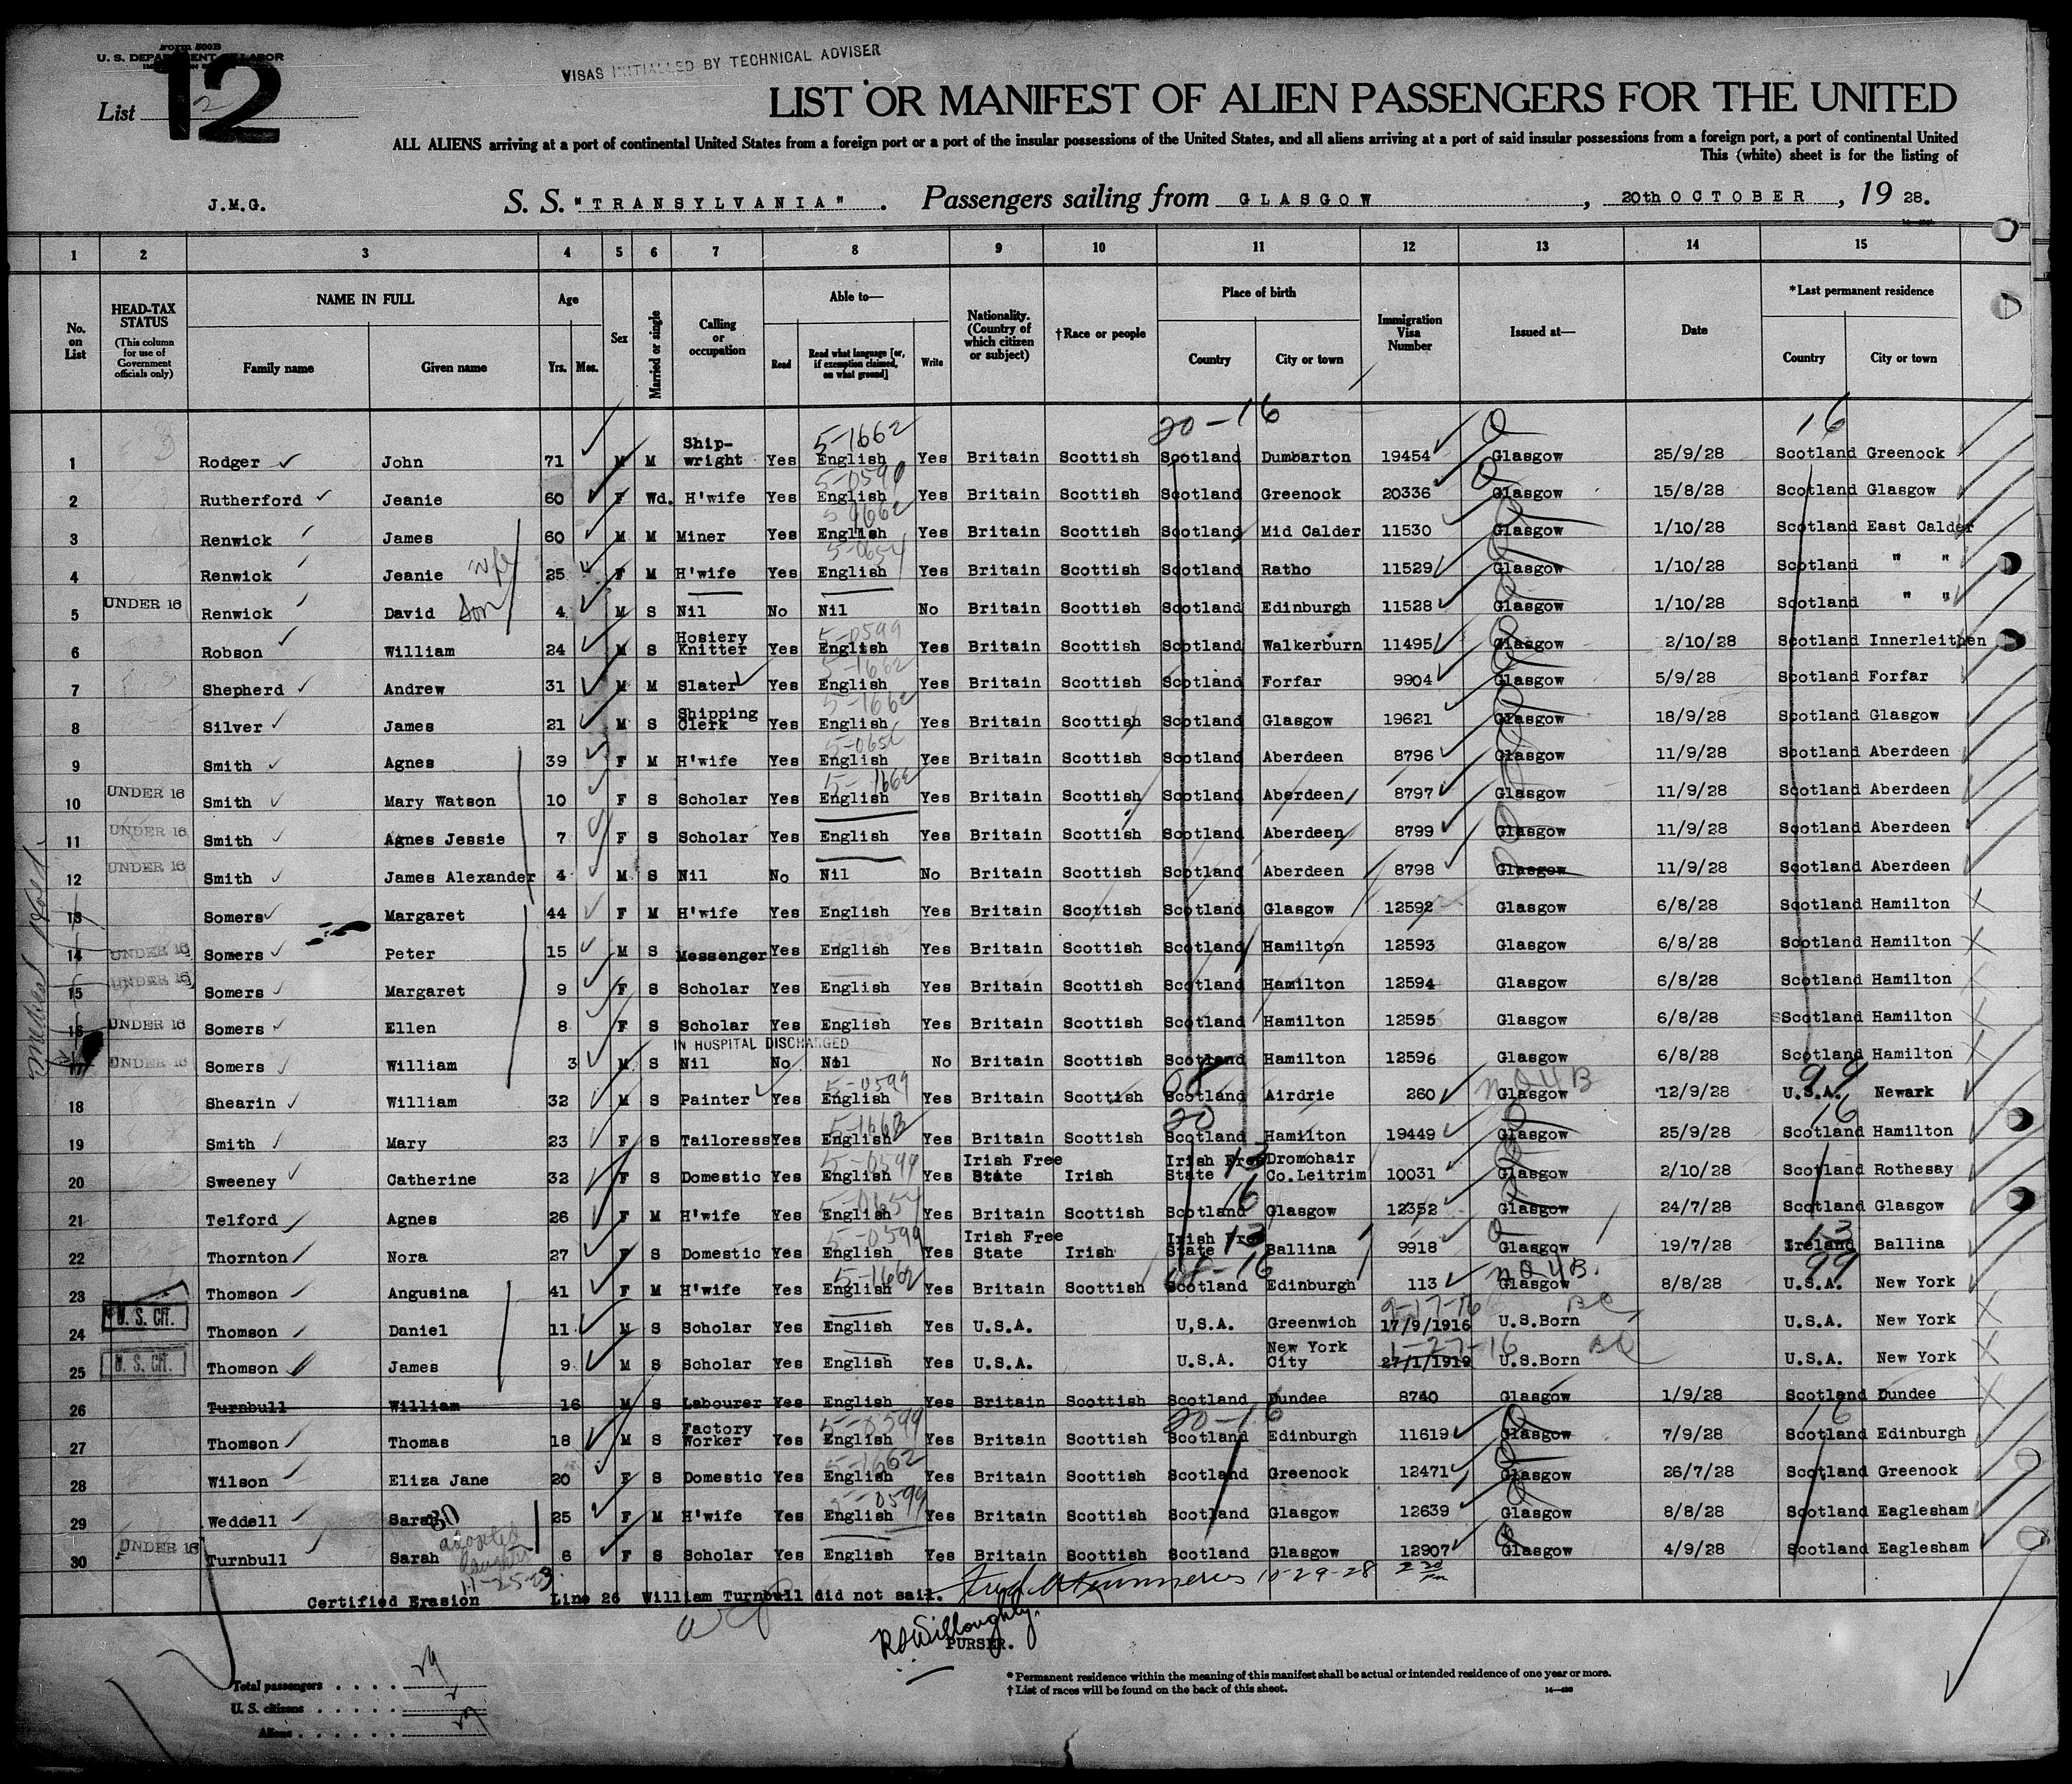 Form 500B
U. S. DEPARTMENT OF LABOR
List 2
12
VISAS INITIALLED BY TECHNICAL ADVISER
LIST OR MANIFEST OF ALIEN PASSENGERS FOR THE UNITED
ALL ALIENS arriving at a port of continental United States from a foreign port or a port of the insular possessions of the United States, and all aliens arriving at a port of said insular possessions from a foreign port, a port of continental United
This (white) sheet is for the listing of
J.M.G. S. S. "TRANSYLVANIA" . Passengers sailing from GLASGOW , 20th OCTOBER , 19 28.
1 2 3 4 5 6 7 8 9 10 11 12 13 14 15
No. on List
HEAD-TAX STATUS (This column for use of Government officials only)
NAME IN FULL Family name Given name
Age Yrs. Mos.
Sex
Married or single
Calling or occupation
Able to— Read Read what language [or, if exemption claimed, on what ground] Write
Nationality. (Country of which citizen or subject)
†Race or people
Place of birth Country City or town
Immigration Visa Number
Issued at—
Date
*Last permanent residence Country City or town
20-16 16
5-1662
1 Rodger John 71 M M Ship-wright Yes English Yes Britain Scottish Scotland Dumbarton 19454 Glasgow 25/9/28 Scotland Greenock
5-0599
2 Rutherford Jeanie 60 F Wd. H'wife Yes English Yes Britain Scottish Scotland Greenock 20336 Glasgow 15/8/28 Scotland Glasgow
5-1662
3 Renwick James 60 M M Miner Yes English Yes Britain Scottish Scotland Mid Calder 11530 Glasgow 1/10/28 Scotland East Calder
5-0654
4 Renwick Jeanie wife 25 F M H'wife Yes English Yes Britain Scottish Scotland Ratho 11529 Glasgow 1/10/28 Scotland " "
5 UNDER 16 Renwick David Son 4 M S Nil No Nil No Britain Scottish Scotland Edinburgh 11528 Glasgow 1/10/28 Scotland " "
5-0599
6 Robson William 24 M S Hosiery Knitter Yes English Yes Britain Scottish Scotland Walkerburn 11495 Glasgow 2/10/28 Scotland Innerleithen
5-1662
7 Shepherd Andrew 31 M M Slater Yes English Yes Britain Scottish Scotland Forfar 9904 Glasgow 5/9/28 Scotland Forfar
5-1662
8 Silver James 21 M S Shipping Clerk Yes English Yes Britain Scottish Scotland Glasgow 19621 Glasgow 18/9/28 Scotland Glasgow
9 Smith Agnes 39 F M H'wife Yes English Yes Britain Scottish Scotland Aberdeen 8796 Glasgow 11/9/28 Scotland Aberdeen
5-1662
10 UNDER 16 Smith Mary Watson 10 F S Scholar Yes English Yes Britain Scottish Scotland Aberdeen 8797 Glasgow 11/9/28 Scotland Aberdeen
11 UNDER 16 Smith Agnes Jessie 7 F S Scholar Yes English Yes Britain Scottish Scotland Aberdeen 8799 Glasgow 11/9/28 Scotland Aberdeen
12 UNDER 16 Smith James Alexander 4 M S Nil No Nil No Britain Scottish Scotland Aberdeen 8798 Glasgow 11/9/28 Scotland Aberdeen
13 Somers Margaret 44 F M H'wife Yes English Yes Britain Scottish Scotland Glasgow 12592 Glasgow 6/8/28 Scotland Hamilton
14 UNDER 16 Somers Peter 15 M S Messenger Yes English Yes Britain Scottish Scotland Hamilton 12593 Glasgow 6/8/28 Scotland Hamilton
15 UNDER 16 Somers Margaret 9 F S Scholar Yes English Yes Britain Scottish Scotland Hamilton 12594 Glasgow 6/8/28 Scotland Hamilton
16 UNDER 16 Somers Ellen 8 F S Scholar Yes English Yes Britain Scottish Scotland Hamilton 12595 Glasgow 6/8/28 Scotland Hamilton
IN HOSPITAL DISCHARGED
17 UNDER 16 Somers William 3 M S Nil No Nil No Britain Scottish Scotland Hamilton 12596 Glasgow 6/8/28 Scotland Hamilton
5-0599 99
18 Shearin William 32 M S Painter Yes English Yes Britain Scottish Scotland Airdrie 260 Glasgow 12/9/28 U.S.A. Newark
5-1662 20 16
19 Smith Mary 23 F S Tailoress Yes English Yes Britain Scottish Scotland Hamilton 19449 Glasgow 25/9/28 Scotland Hamilton
5-0599 13
20 Sweeney Catherine 32 F S Domestic Yes English Yes Irish Free State Irish Irish Free State Dromohair Co.Leitrim 10031 Glasgow 2/10/28 Scotland Rothesay
5-0654 16
21 Telford Agnes 26 F M H'wife Yes English Yes Britain Scottish Scotland Glasgow 12352 Glasgow 24/7/28 Scotland Glasgow
5-0599 13 13
22 Thornton Nora 27 F S Domestic Yes English Yes Irish Free State Irish Irish Free State Ballina 9918 Glasgow 19/7/28 Ireland Ballina
5-1662 99
23 Thomson Angusina 41 F M H'wife Yes English Yes Britain Scottish Scotland Edinburgh 113 Glasgow 8/8/28 U.S.A. New York
9-17-16 BC
24 U. S. CIT. Thomson Daniel 11 M S Scholar Yes English Yes U.S.A. U,S.A. Greenwich 17/9/1916 U.S.Born U.S.A. New York
1-27-16 BC
25 U. S. CIT. Thomson James 9 M S Scholar Yes English Yes U.S.A. U.S.A. New York City 27/1/1919 U.S.Born U.S.A. New York
26 Turnbull William 16 M S Labourer Yes English Yes Britain Scottish Scotland Dundee 8740 Glasgow 1/9/28 Scotland Dundee
5-0599 20-16 16
27 Thomson Thomas 18 M S Factory Worker Yes English Yes Britain Scottish Scotland Edinburgh 11619 Glasgow 7/9/28 Scotland Edinburgh
5-1662
28 Wilson Eliza Jane 20 F S Domestic Yes English Yes Britain Scottish Scotland Greenock 12471 Glasgow 26/7/28 Scotland Greenock
5-0599
29 Weddell Sarah 25 F M H'wife Yes English Yes Britain Scottish Scotland Glasgow 12639 Glasgow 8/8/28 Scotland Eaglesham
30 adopted daughter
30 UNDER 16 Turnbull Sarah 6 F S Scholar Yes English Yes Britain Scottish Scotland Glasgow 12907 Glasgow 4/9/28 Scotland Eaglesham
Certified Erasion Line 26 William Turnbull did not sail. 10-29-28
PURSER.
Total passengers . . . .
U. S. citizens . . . . .
Aliens . . . . . .
* Permanent residence within the meaning of this manifest shall be actual or intended residence of one year or more.
† List of races will be found on the back of this sheet.